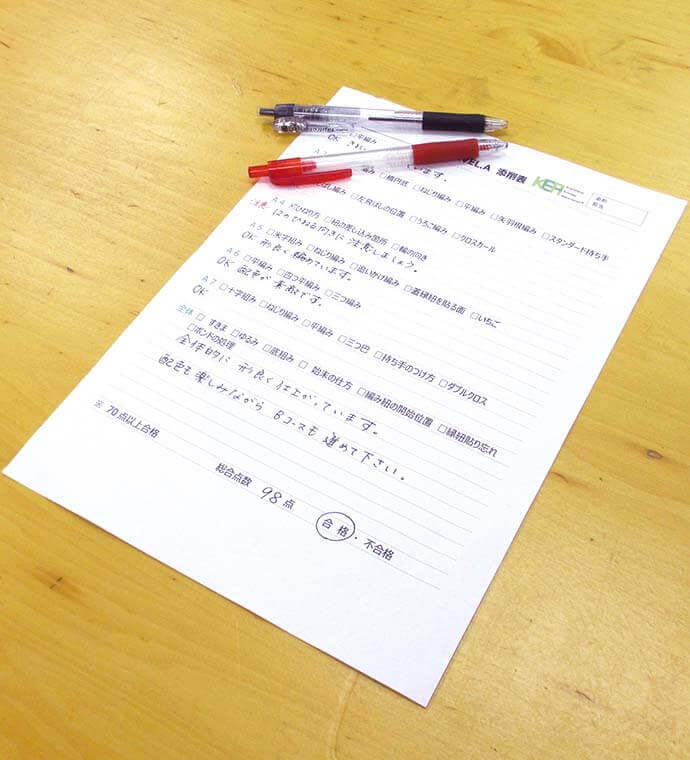 VEL.A 添削表 KEA
□平編み
OK
□楕円底 □ねじり編み □平編み □矢羽根編み □スタンダード持ち手
□左飛ばしの位置 □うろこ編み □クロスカール
A.4 ☑ひねり方 □紐の差し込み箇所 □輪の向き
注意 12のひねる向きに注意しましょう。
A.5 □米字組み □ねじり編み □追いかけ編み □蓋縁紐を貼る面 □いちご
OK 形良く編めています。
A.6 □平編み □四つ平編み □三つ編み
OK 配色が素敵です。
A.7 □十字組み □ねじり編み □平編み □三つ巴 □持ち手のつけ方 □ダブルクロス
OK
全体 □すきま □ゆるみ □底組み □始末の仕方 □編み紐の開始位置 □縁紐貼り忘れ
□ボンドの処理
全体的に 形良く仕上がっています。
配色も楽しみながら Bコースも進めて下さい。
※ 70点以上合格
総合点数 98 点 合格・不合格